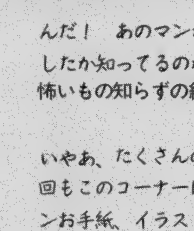 んだ！　あのマン
したか知ってるの
怖いもの知らずの
いやあ、たくさん
回もこのコーナー
ンお手紙、イラス